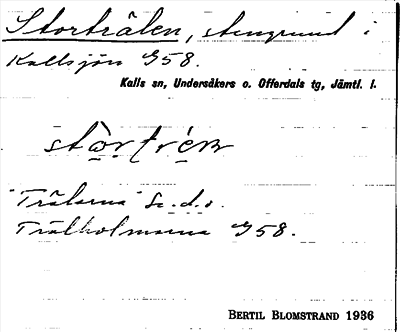 Stortrålen, stengrund i
Kallsjön G58.
Kalls sn, Undersåkers o. Offerdals tg, Jämtl. l.
"Trålarna" se d. o.
Trålholmarna G58.
BERTIL BLOMSTRAND 1936